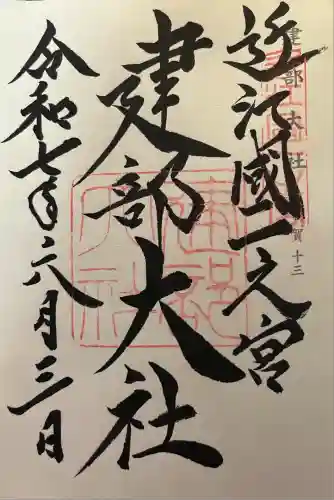 近江國一之宮
建部大社
令和七年六月三日
建部大社
賀十三